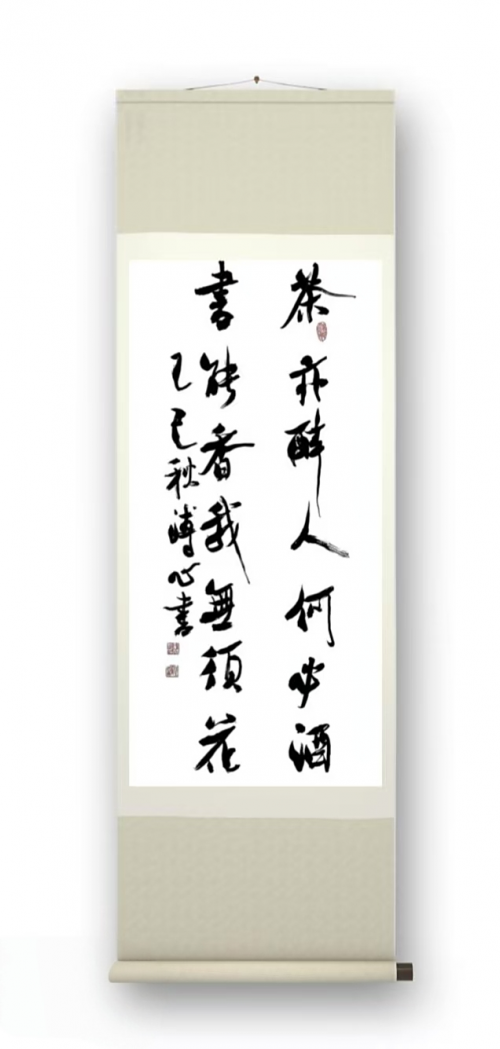 茶亦醉人何必酒
書能香我無須花
乙巳秋溥心書